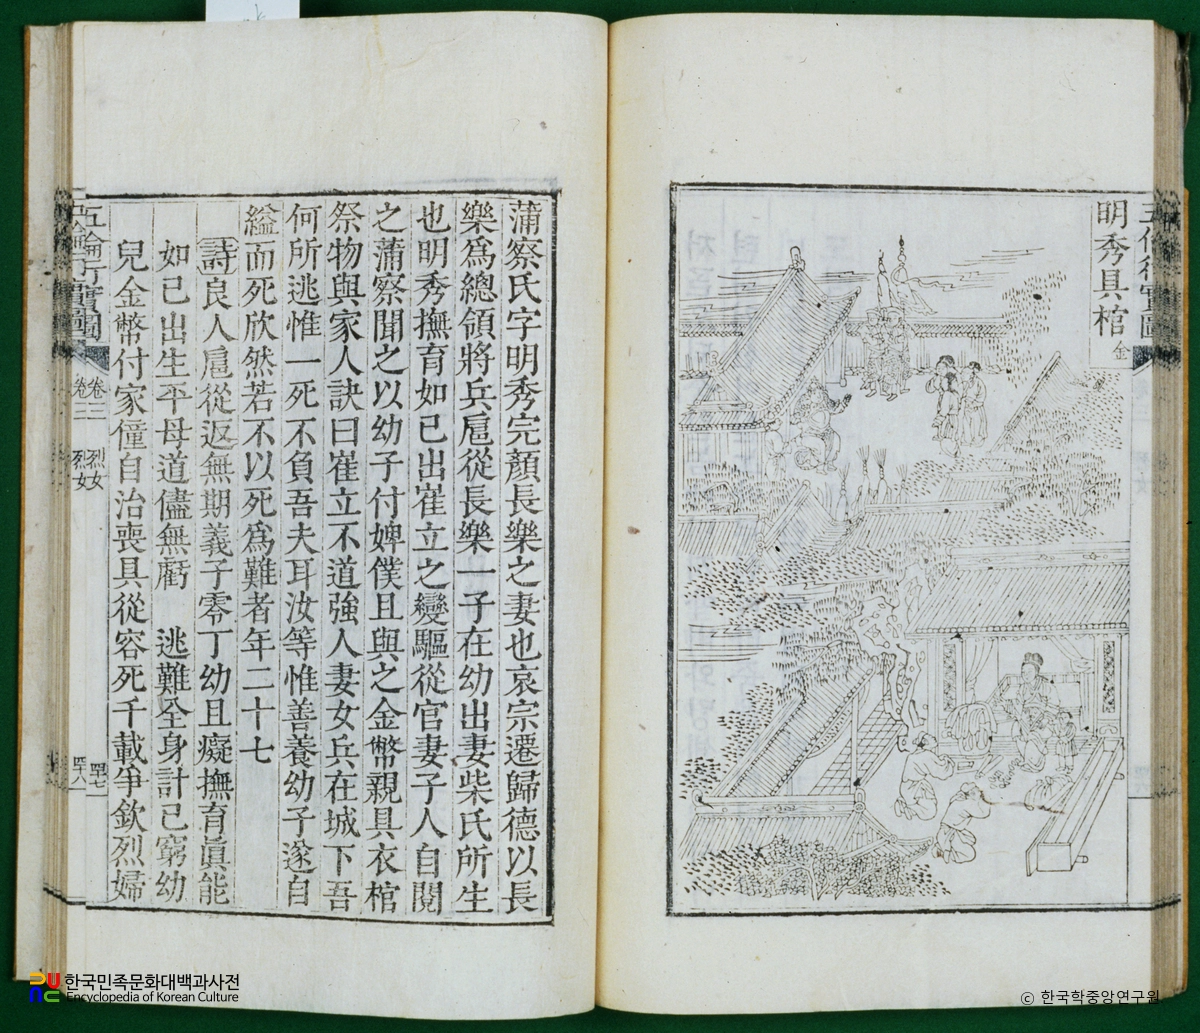 五倫行實圖
明秀具棺 金
蒲察氏字明秀完顏長樂之妻也哀宗遷歸德以長
樂爲總領將兵扈從長樂一子在幼出妻柴氏所生
也明秀撫育如己出崔立之變驅從官妻子人自閱
之蒲察聞之以幼子付婢僕且與之金幣親具衣棺
祭物與家人訣曰崔立不道強人妻女兵在城下吾
何所逃惟一死不負吾夫耳汝等惟善養幼子遂自
縊而死欣然若不以死爲難者年二十七
詩良人扈從返無期義子零丁幼且癡撫育眞能
如己出生平母道儘無虧 逃難全身計已窮幼
兒金幣付家僮自治喪具從容死千載爭欽烈婦
五倫行實圖 卷三 烈女 四七
卷三 烈女 四八
한국민족문화대백과사전
Encyclopedia of Korean Culture
© 한국학중앙연구원